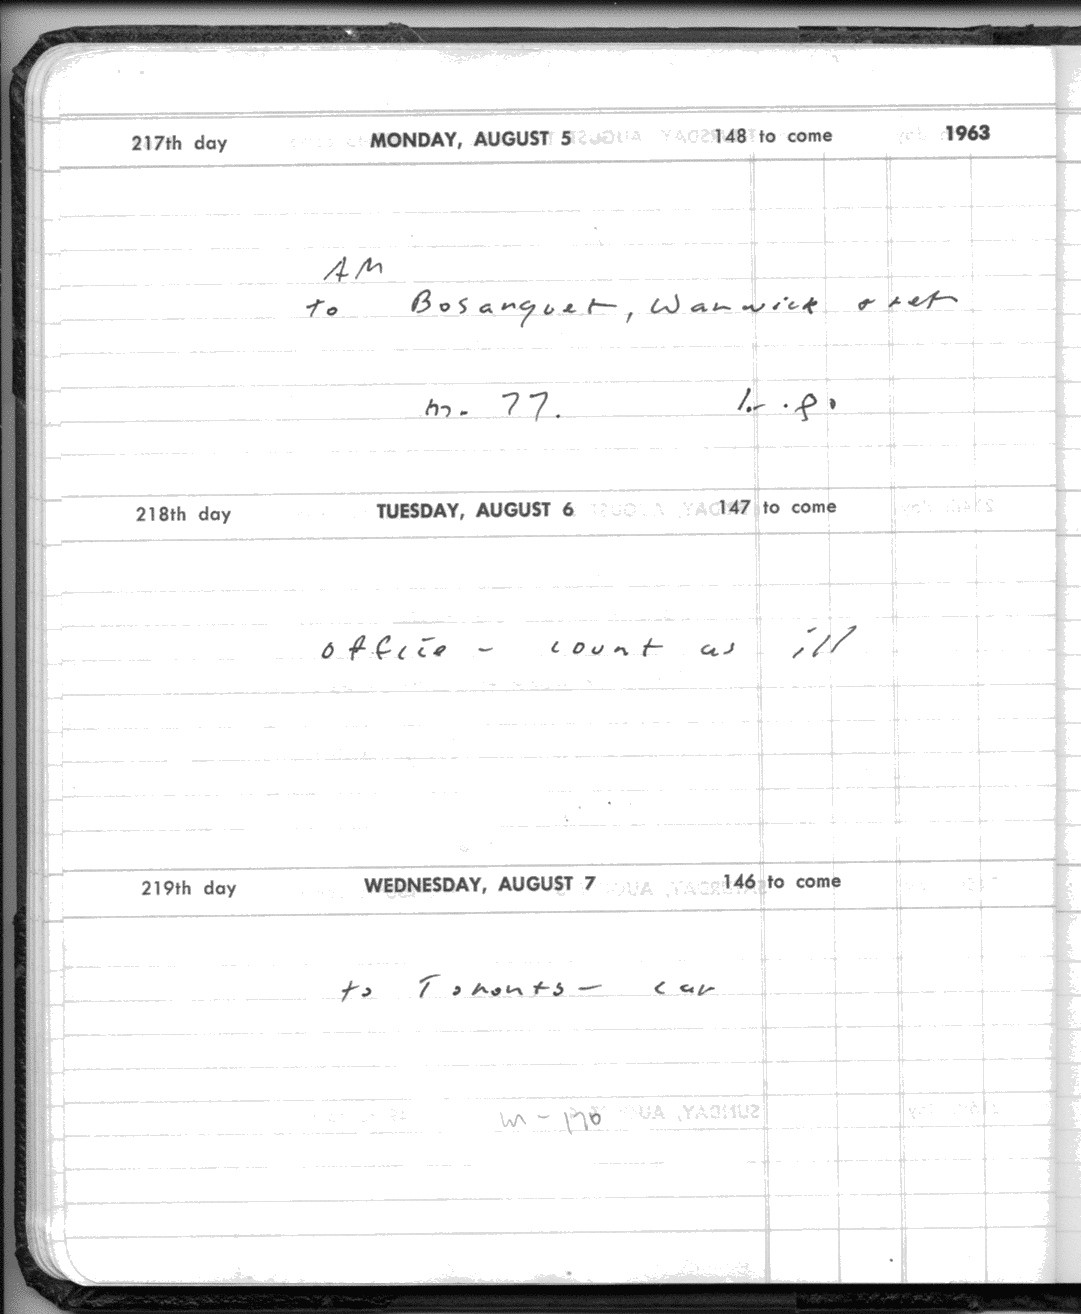 217th day MONDAY, AUGUST 5 148 to come 1963
AM
to Bosanquet, Warwick & ret
m. 77.
218th day TUESDAY, AUGUST 6 147 to come
office - count as ill
219th day WEDNESDAY, AUGUST 7 146 to come
to Toronto - car
m - 170